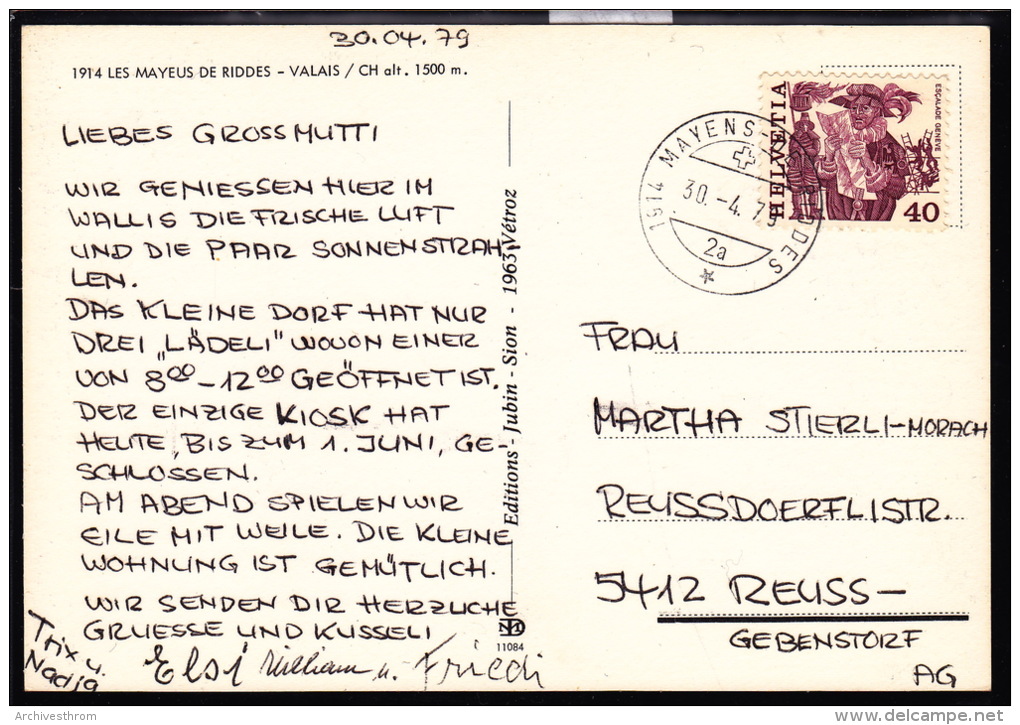 30.04.79
1914 LES MAYEUS DE RIDDES - VALAIS / CH alt. 1500 m.
LIEBES GROSSMUTTI
WIR GENIESSEN HIER IM
WALLIS DIE FRISCHE LUFT
UND DIE PAAR SONNENSTRAH-
LEN.
DAS KLEINE DORF HAT NUR
DREI „LÄDELI" WOVON EINER
VON 8⁰⁰-12⁰⁰ GEÖFFNET IST.
DER EINZIGE KIOSK HAT
HEUTE, BIS ZUM 1. JUNI, GE-
SCHLOSSEN.
AM ABEND SPIELEN WIR
EILE MIT WEILE. DIE KLEINE
WOHNUNG IST GEMÜTLICH.
WIR SENDEN DIR HERZLICHE
GRUESSE UND KUSSELI
Trix u.
Nadja
Elsi William u. Friedi
Editions - Jubin - Sion - 1963 Vétroz
11084
1914 MAYENS-DE-RIDDES
30.-4.79
2a
HELVETIA
ESCALADE GENÈVE
40
FRAU
MARTHA STIERLI-MORACH
REUSSDOERFLISTR.
5412 REUSS-
GEBENSTORF
AG
Archivesthrom
delcampe.net